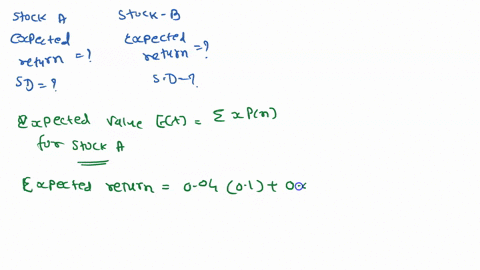 Stock A Stock-B
Expected return =? Expected return =?
SD=? S.D-?
Expected value E(x) = Σ x P(n)
for Stock A
Expected return = 0.04 (0.1) + 0